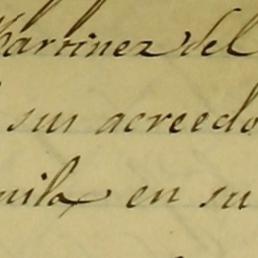 Martinez del
sus acreedo
uila en su